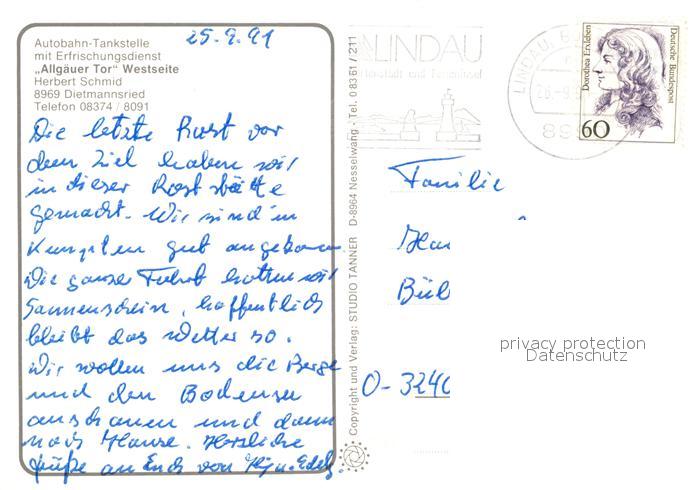 Autobahn-Tankstelle
mit Erfrischungsdienst
„Allgäuer Tor" Westseite
Herbert Schmid
8969 Dietmannsried
Telefon 08374 / 8091
25.9.91
Die letzte Rast vor
dem Ziel haben wir
in dieser Raststätte
gemacht. Wir sind in
gut angekommen.
Die ganze Fahrt hatten wir
Sonnenschein, hoffentlich
bleibt das Wetter so.
Wir wollen uns die Berge
und den Bodensee
anschauen und dann
nach Hause. Herzliche
Grüße an Euch von
Copyright und Verlag: STUDIO TANNER D-8964 Nesselwang · Tel. 0 83 61 / 211
LINDAU
LINDAU, B
89
Dorothea Erxleben
Deutsche Bundespost
60
Familie
Hau
Bül
O-3240
privacy protection
Datenschutz